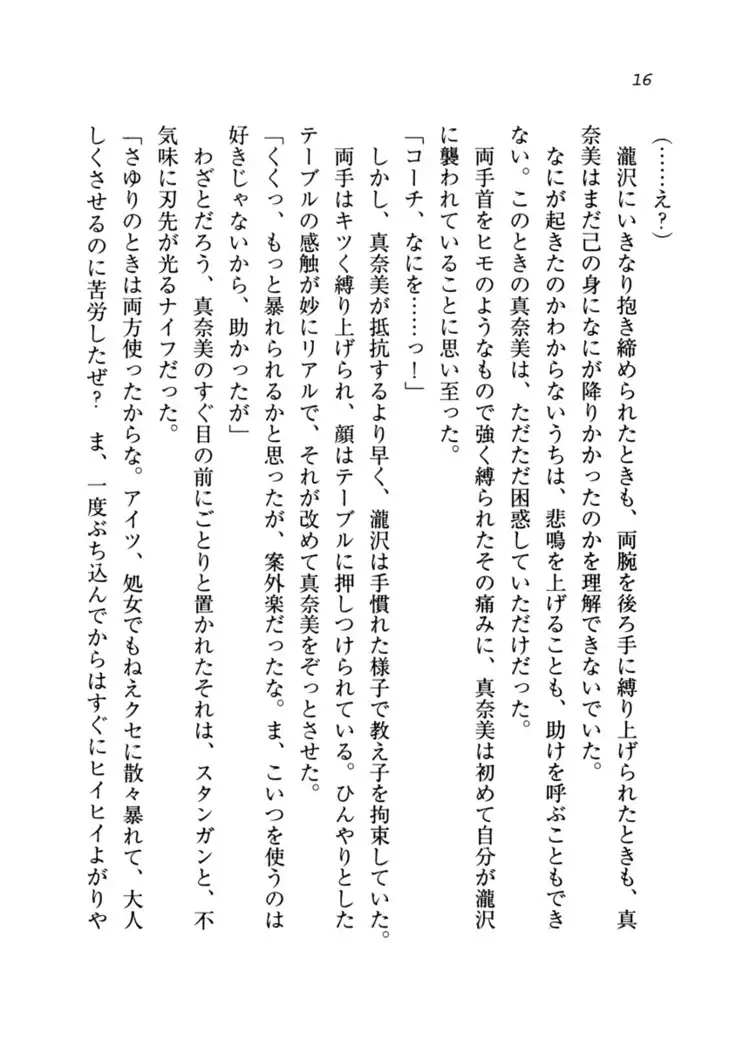 16
(……え?)
　瀧沢にいきなり抱き締められたときも、両腕を後ろ手に縛り上げられたときも、真
奈美はまだ己の身になにが降りかかったのかを理解できないでいた。
　なにが起きたのかわからないうちは、悲鳴を上げることも、助けを呼ぶこともでき
ない。このときの真奈美は、ただただ困惑していただけだった。
　両手首をヒモのようなもので強く縛られたその痛みに、真奈美は初めて自分が瀧沢
に襲われていることに思い至った。
「コーチ、なにを……っ!」
　しかし、真奈美が抵抗するより早く、瀧沢は手慣れた様子で教え子を拘束していた。
　両手はキツく縛り上げられ、顔はテーブルに押しつけられている。ひんやりとした
テーブルの感触が妙にリアルで、それが改めて真奈美をぞっとさせた。
「くくっ、もっと暴れられるかと思ったが、案外楽だったな。ま、こいつを使うのは
好きじゃないから、助かったが」
　わざとだろう、真奈美のすぐ目の前にごとりと置かれたそれは、スタンガンと、不
気味に刃先が光るナイフだった。
「さゆりのときは両方使ったからな。アイツ、処女でもねえクセに散々暴れて、大人
しくさせるのに苦労したぜ?　ま、一度ぶち込んでからはすぐにヒイヒイよがりや